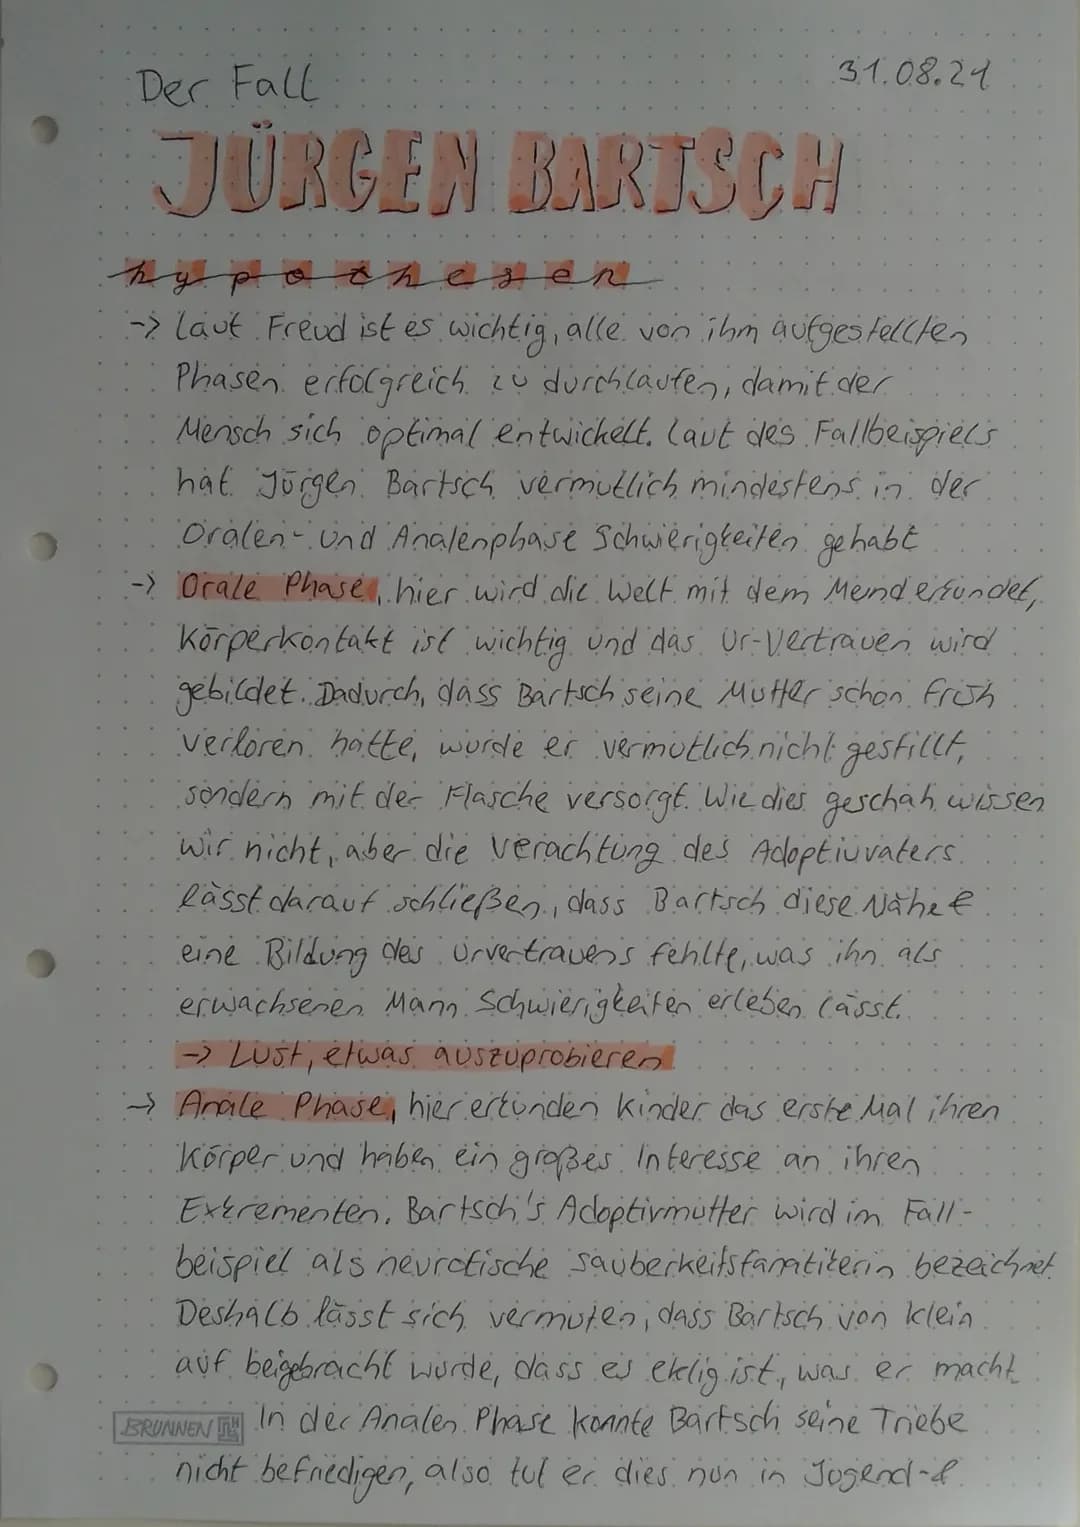 Der Fall
31.08.21
JÜRGEN BARTSCH
hypothesen
-> Laut Freud ist es wichtig, alle von ihm aufgestellten
Phasen erfolgreich zu durchlaufen, damit der
Mensch sich optimal entwickelt. Laut des Fallbeispiels
hat Jürgen Bartsch vermutlich mindestens in der
Oralen- und Analenphase Schwierigkeiten gehabt
-> Orale Phase, hier wird die Welt mit dem Mund erkundet,
Körperkontakt ist wichtig und das Ur-Vertrauen wird
gebildet. Dadurch, dass Bartsch seine Mutter schon früh
verloren hatte, wurde er vermutlich nicht gestillt,
sondern mit der Flasche versorgt. Wie dies geschah wissen
wir nicht, aber die Verachtung des Adoptivvaters
lässt darauf schließen, dass Bartsch diese Nähe &
eine Bildung des Urvertrauens fehlte, was ihn als
erwachsenen Mann Schwierigkeiten erleben lässt.
-> Lust, etwas auszuprobieren
-> Anale Phase, hier erkunden Kinder das erste Mal ihren
Körper und haben ein großes Interesse an ihren
Exkrementen. Bartsch's Adoptivmutter wird im Fall-
beispiel als neurotische Sauberkeitsfanatikerin bezeichnet.
Deshalb lässt sich vermuten, dass Bartsch von klein
auf beigebracht wurde, dass es eklig ist, was er macht.
BRUNNEN In der Analen Phase konnte Bartsch seine Triebe
nicht befriedigen, also tut er dies nun in Jugend- &